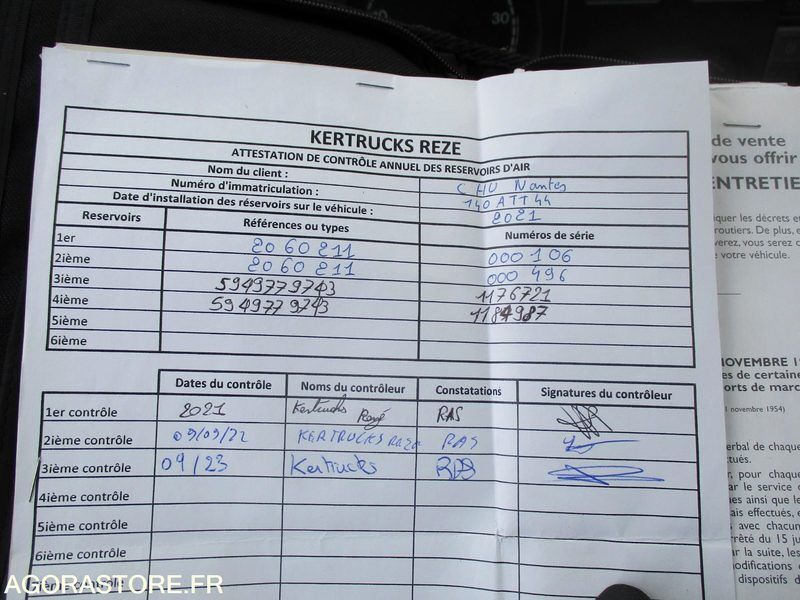 KERTRUCKS REZE
ATTESTATION DE CONTRÔLE ANNUEL DES RESERVOIRS D'AIR
Nom du client : CHU Nantes
Numéro d'immatriculation : 140 ATT 44
Date d'installation des réservoirs sur le véhicule : 2021
Reservoirs Références ou types Numéros de série
1er 20 60 211 000 106
2ième 20 60 211 000 496
3ième 5949779743 1176721
4ième 5949779743 1184987
5ième
6ième
Dates du contrôle Noms du contrôleur Constatations Signatures du contrôleur
1er contrôle 2021 Kertrucks Rezé RAS
2ième contrôle 09/09/22 KERTRUCKS REZE RAS
3ième contrôle 09/23 Kertrucks RAS
4ième contrôle
5ième contrôle
6ième contrôle
7ième contrôle
de vente
vous offrir
ENTRETIE
iquer les décrets et
routiers. De plus, e
verez, vous serez c
e votre véhicule.
NOVEMBRE 1
es de certaine
orts de marc
1 novembre 1954)
erbal de chaque
tués.
r, pour chaque
ar le service
nes ainsi que le
ais effectués, e
s avec chacun
rrêté du 15 ju
ur la suite, les
modifications d
dispositifs d
30
AGORASTORE.FR